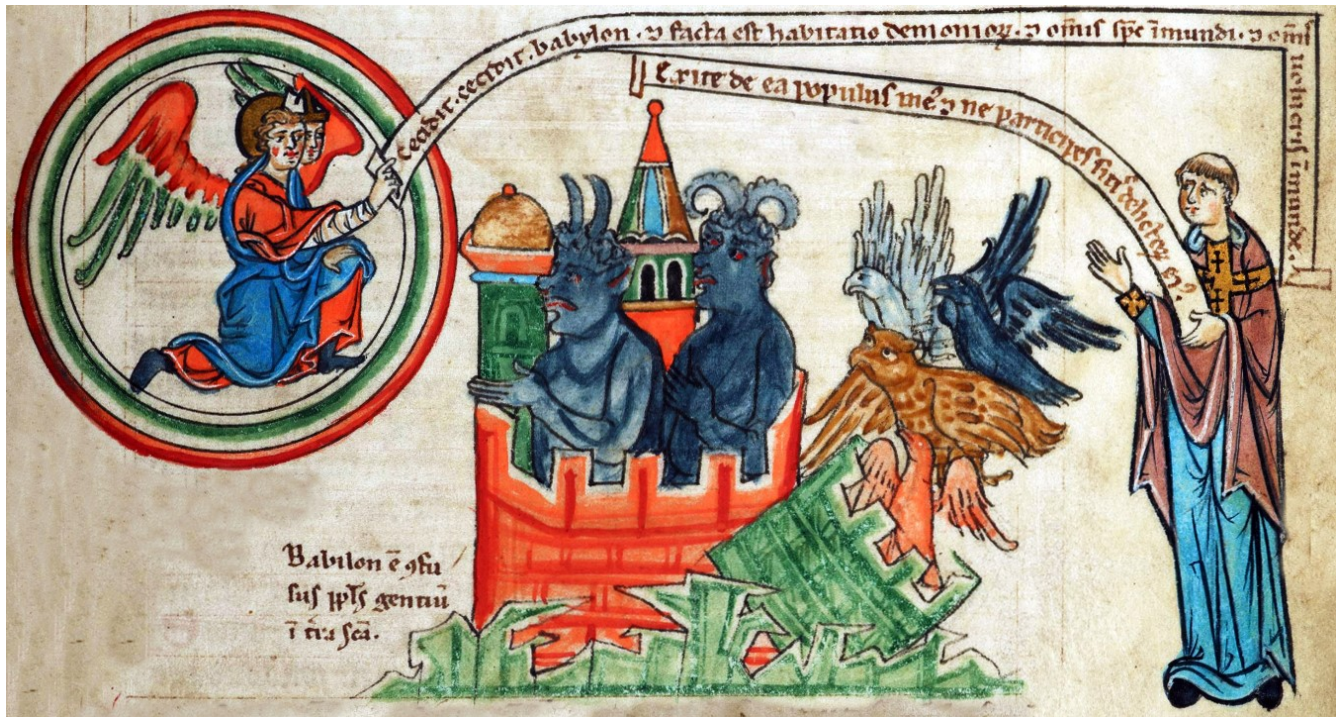 Cecidit. cecidit. babylon. ⁊ facta est habitatio demonioꝝ. ⁊ om̄is sp̄c īmundi. ⁊ om̄is
uolucris īmunde.
Exite de ea populus me᷒ ⁊ ne participes sitis delictoꝝ ei᷒.
Babilon ē ꝯfu
sus ppl̄s gentiū
ī t̄ra sc̄a.